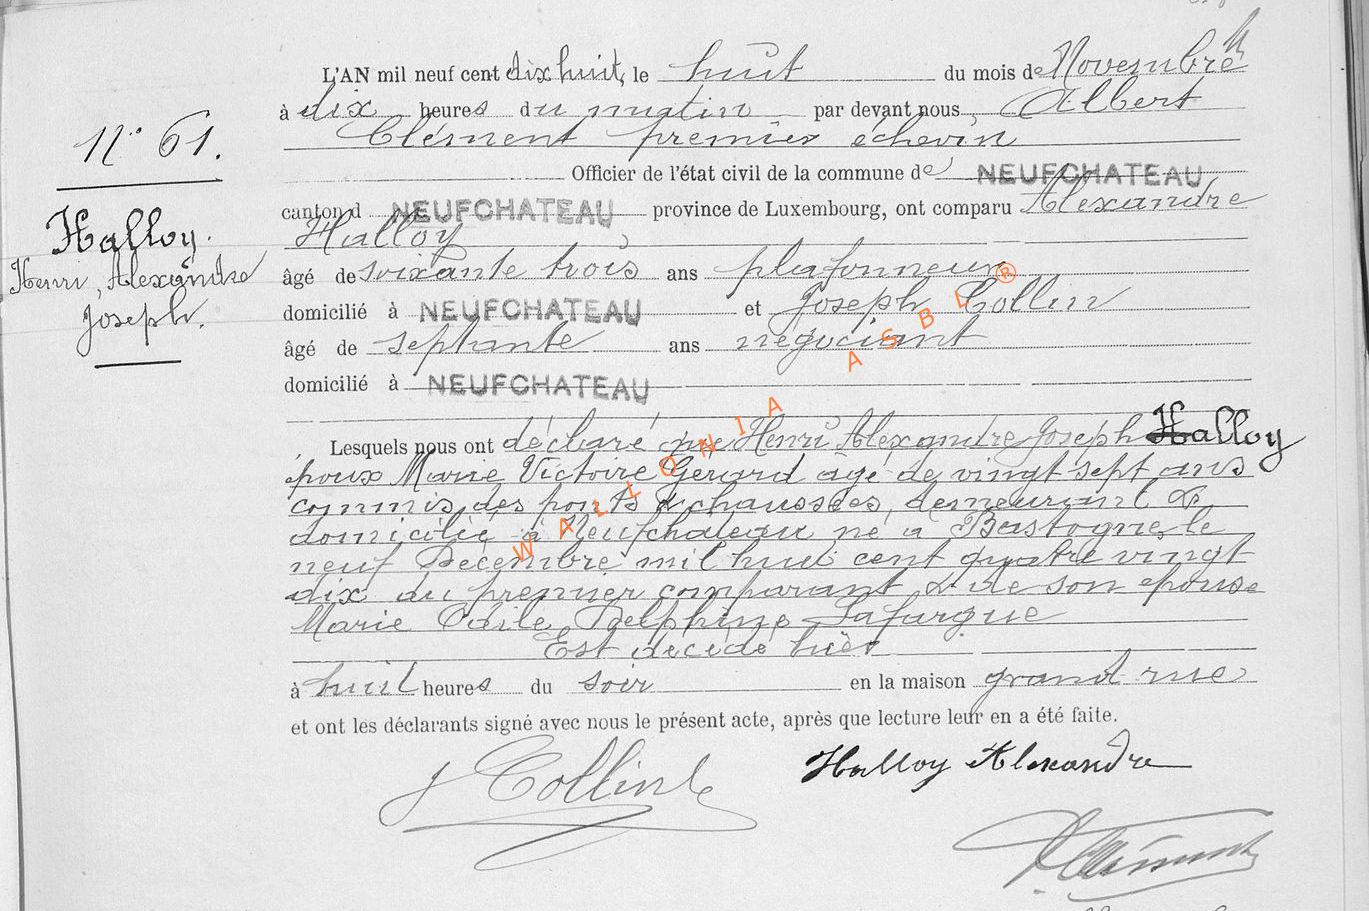 L'AN mil neuf cent dix huit, le huit du mois de Novembre
à dix heures du matin par devant nous, Albert
Clément premier échevin
Officier de l'état civil de la commune de NEUFCHATEAU
canton d NEUFCHATEAU province de Luxembourg, ont comparu Alexandre
Halloy
âgé de soixante trois ans plafonneur
domicilié à NEUFCHATEAU et Joseph Collin
âgé de septante ans négociant
domicilié à NEUFCHATEAU
Lesquels nous ont déclaré que Henri Alexandre Joseph Halloy
époux Marie Victoire Gérard âgé de vingt sept ans
commis des ponts & chaussées, demeurant &
domicilié à Neufchateau né à Bastogne, le
neuf Décembre mil huit cent quatre vingt
dix du premier comparant & de son épouse
Marie Delphine Lafargue
Est décédé hier
à huit heures du soir en la maison grand rue
et ont les déclarants signé avec nous le présent acte, après que lecture leur en a été faite.
J Collin
Halloy Alexandre
A. Clément
N° 61.
Halloy.
Henri, Alexandre
Joseph.
WALLONIA ASBL ®